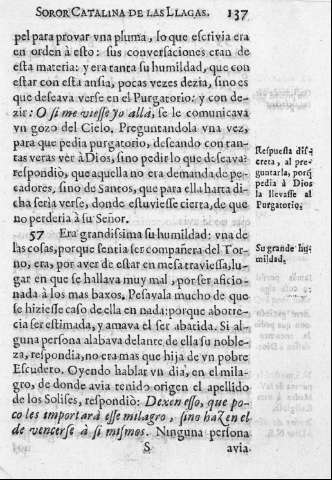 SOROR CATALINA DE LAS LLAGAS. 137
pel para provar vna pluma, lo que escrivia era
en orden à esto: sus conversaciones eran de
esta materia: y era tanta su humildad, que con
estar con esta ansia, pocas vezes dezia, sino es
que deseava verse en el Purgatorio: y con de-
zir: O si me viesse yo allá, se le comunicava
vn gozo del Cielo. Preguntandola vna vez,
para que pedia purgatorio, deseando con tan-
tas veras ver à Dios, sino pedir lo que deseava?
respondiò, que aquella no era demanda de pe-
cadores, sino de Santos, que para ella harta di-
cha seria verse, donde estuviesse cierta, de que
no perderia à su Señor.
Respuesta dis-
creta, al pre-
guntarla, porq̃
pedia à Dios
la llevasse al
Purgatorio.
57 Era grandissima su humildad: vna de
las cosas, porque sentia ser compañera del Tor-
no, era, por aver de estar en mesa traviessa, lu-
gar en que se hallava muy mal, por ser aficio-
nada à los mas baxos. Pesavala mucho de que
se hiziesse caso de ella en nada: porque aborre-
cia ser estimada, y amava el ser abatida. Si al-
guna persona alabava delante de ella su noble-
za, respondia, no era mas que hija de vn pobre
Escudero. Oyendo hablar vn dia, en el mila-
gro, de donde avia tenido origen el apellido
de los Solises, respondiò: Dexen esso, que po-
co les importarà esse milagro, sino hazen el
de vencerse à si mismos. Ninguna persona
Su grande hu-
mildad.
S avia